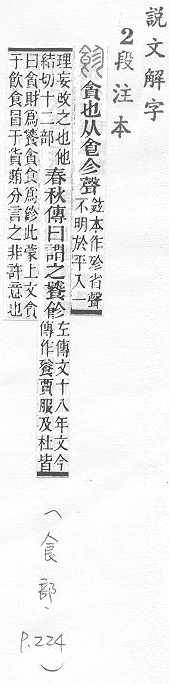 說文解字
2段注本
飻
貪也从食㐱聲
鉉本作殄省聲
不明於平入一
理妄改之也他
結切十二部
春秋傳曰謂之饕飻
左傳文十八年文今
傳作餮賈服及杜皆
曰貪財爲饕貪食爲飻此蒙上文貪
于飲食冒于貨賄分言之非許意也
(食部、P.224)